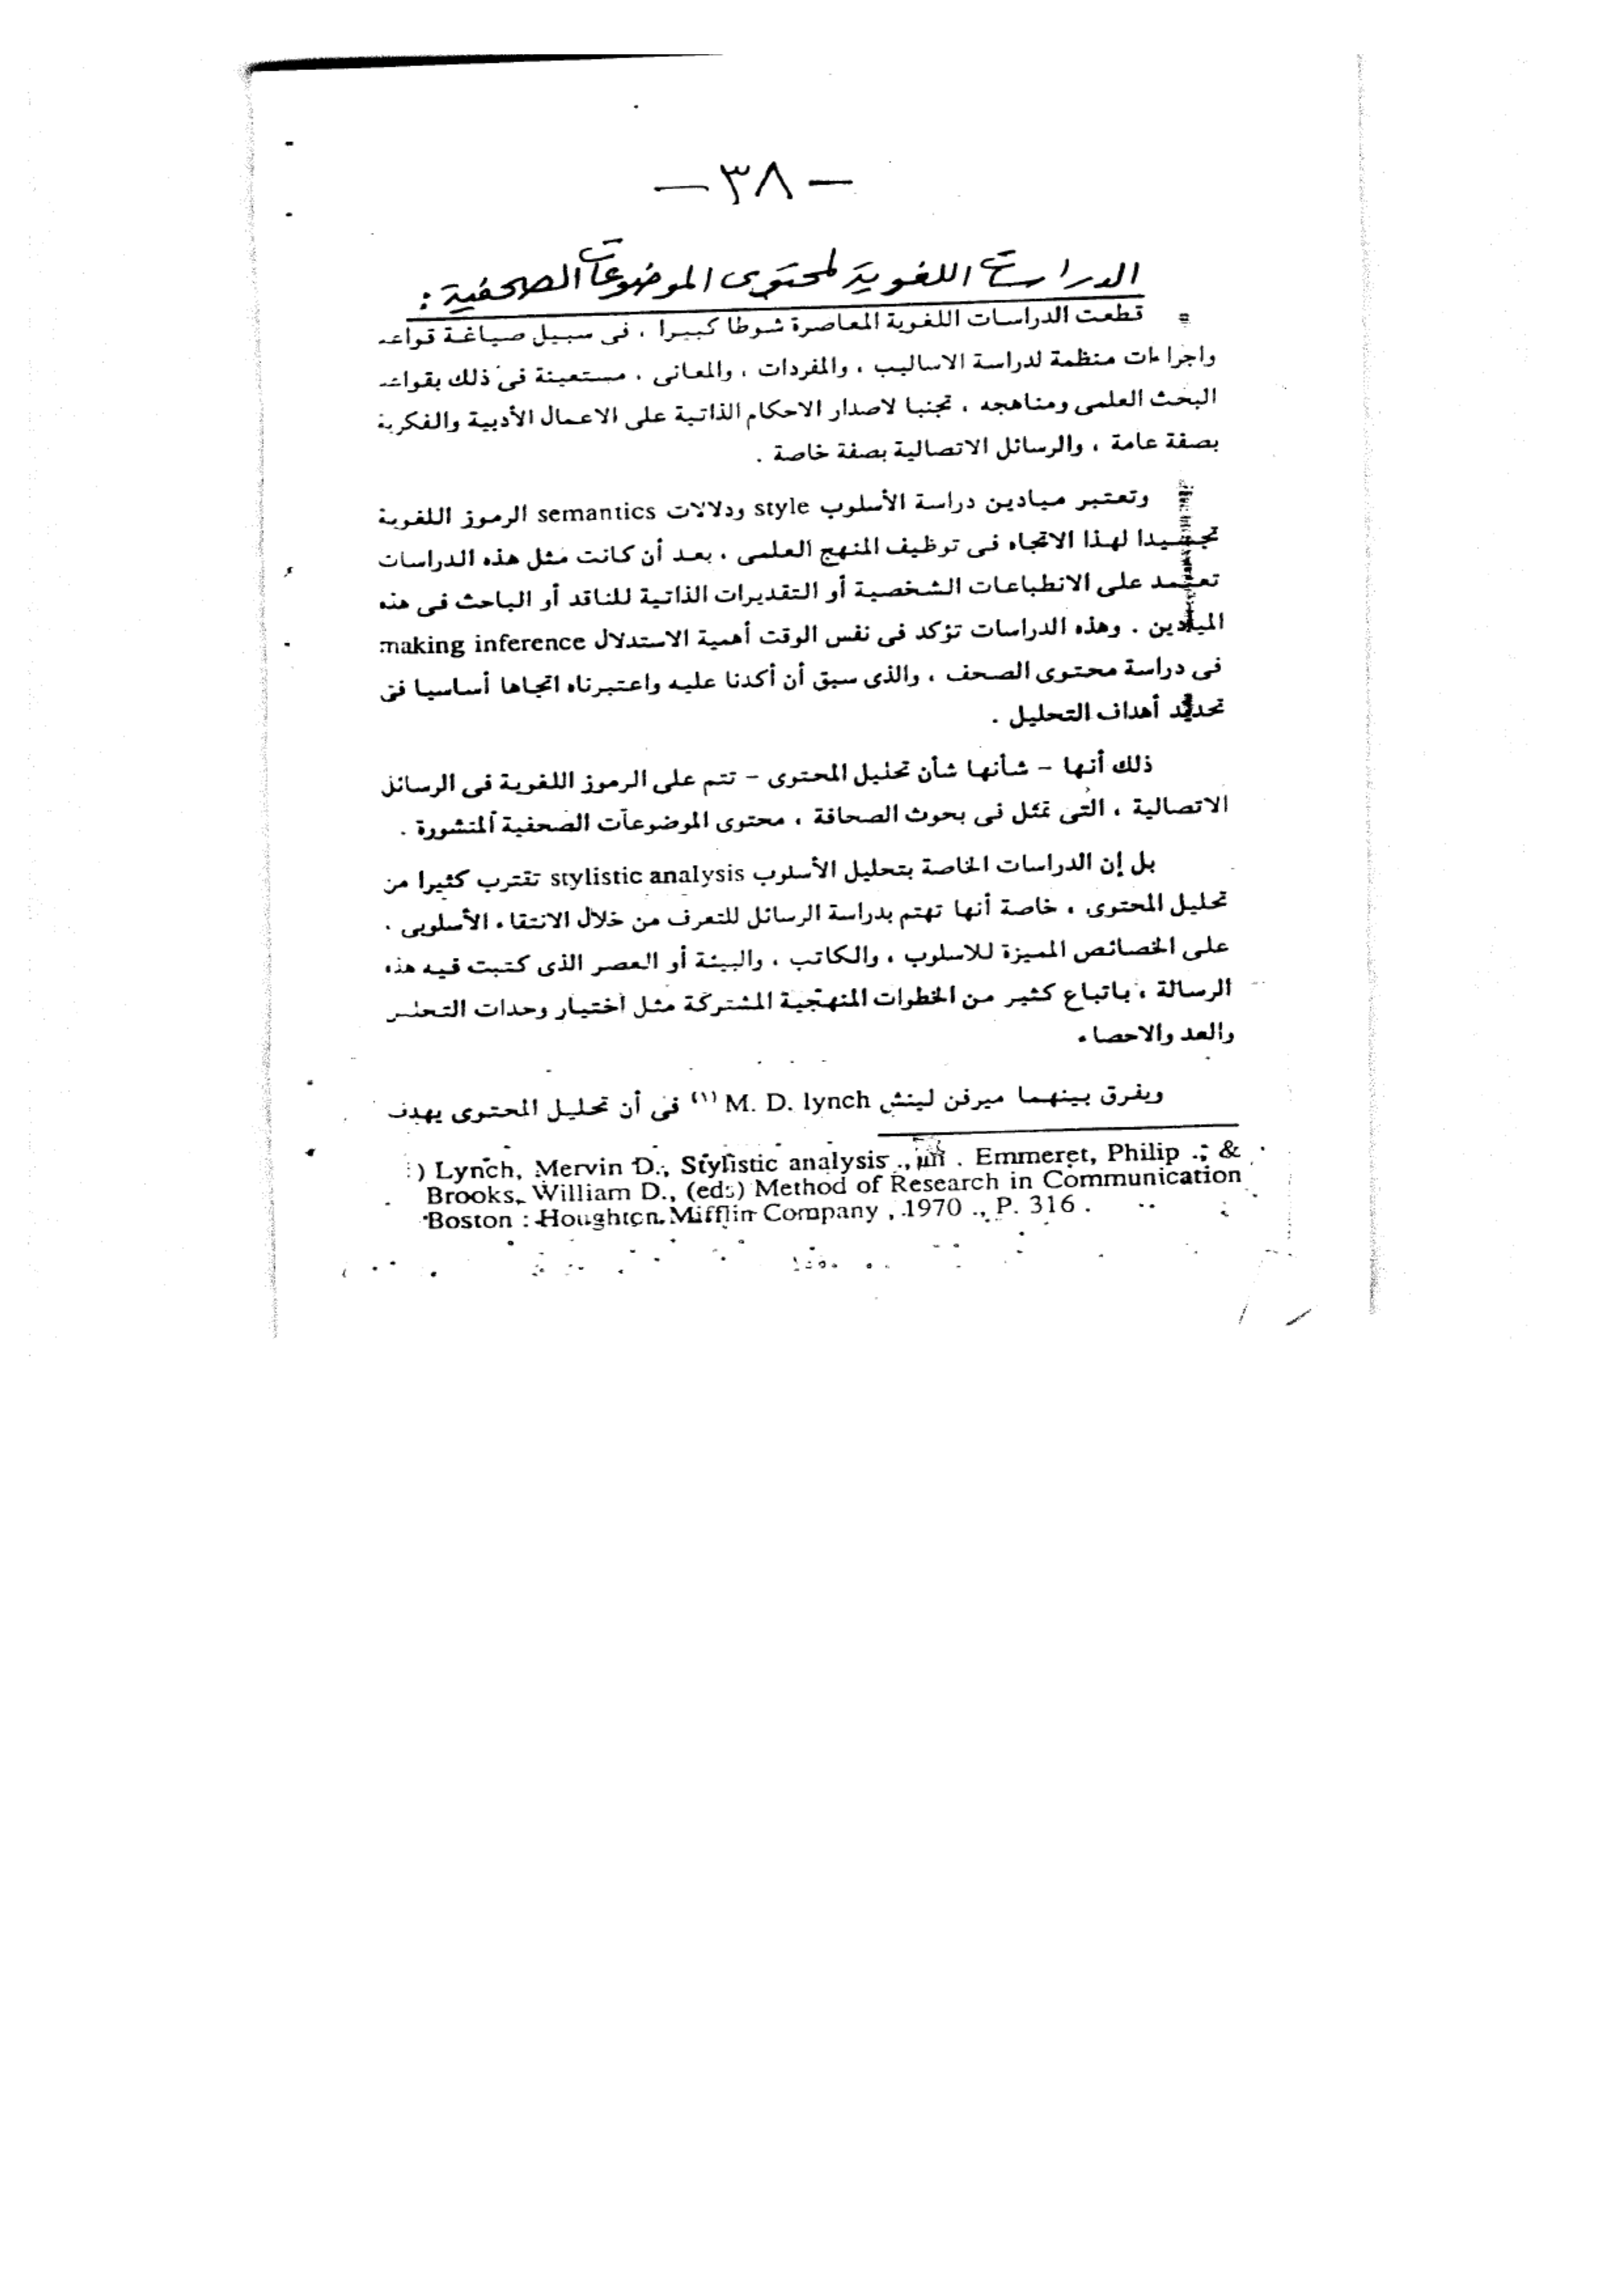 – ٣٨ –
الدراسات اللغوية لمحتوى الموضوعات الصحفية :
قطعت الدراسات اللغوية المعاصرة شوطا كبيرا ، فى سبيل صياغة قواعد
واجراءات منظمة لدراسة الاساليب ، والمفردات ، والمعانى ، مستعينة فى ذلك بقواعد
البحث العلمى ومناهجه ، تجنبا لاصدار الاحكام الذاتية على الاعمال الأدبية والفكرية
بصفة عامة ، والرسائل الاتصالية بصفة خاصة .
وتعتبر ميادين دراسة الأسلوب style ودلالات semantics الرموز اللغوية
تجسيدا لهذا الاتجاه فى توظيف المنهج العلمى ، بعد أن كانت مثل هذه الدراسات
تعتمد على الانطباعات الشخصية أو التقديرات الذاتية للناقد أو الباحث فى هذه
الميادين . وهذه الدراسات تؤكد فى نفس الوقت أهمية الاستدلال making inference
فى دراسة محتوى الصحف ، والذى سبق أن أكدنا عليه واعتبرناه اتجاها أساسيا فى
تحديد أهداف التحليل .
ذلك أنها – شأنها شأن تحليل المحتوى – تتم على الرموز اللغوية فى الرسائل
الاتصالية ، التى تمثل فى بحوث الصحافة ، محتوى الموضوعات الصحفية المنشورة .
بل إن الدراسات الخاصة بتحليل الأسلوب stylistic analysis تقترب كثيرا من
تحليل المحتوى ، خاصة أنها تهتم بدراسة الرسائل للتعرف من خلال الانتقاء الأسلوبى ،
على الخصائص المميزة للاسلوب ، والكاتب ، والبيئة أو العصر الذى كتبت فيه هذه
الرسالة ، باتباع كثير من الخطوات المنهجية المشتركة مثل اختيار وحدات التحليل
والعد والاحصاء
ويفرق بينهما ميرفن لينش M. D. lynch (١) فى أن تحليل المحتوى يهدف
) Lynch, Mervin D., Stylistic analysis ., in . Emmeret, Philip .; &
Brooks, William D., (eds) Method of Research in Communication
Boston : Houghton Mifflin Company , 1970 ., P. 316 .